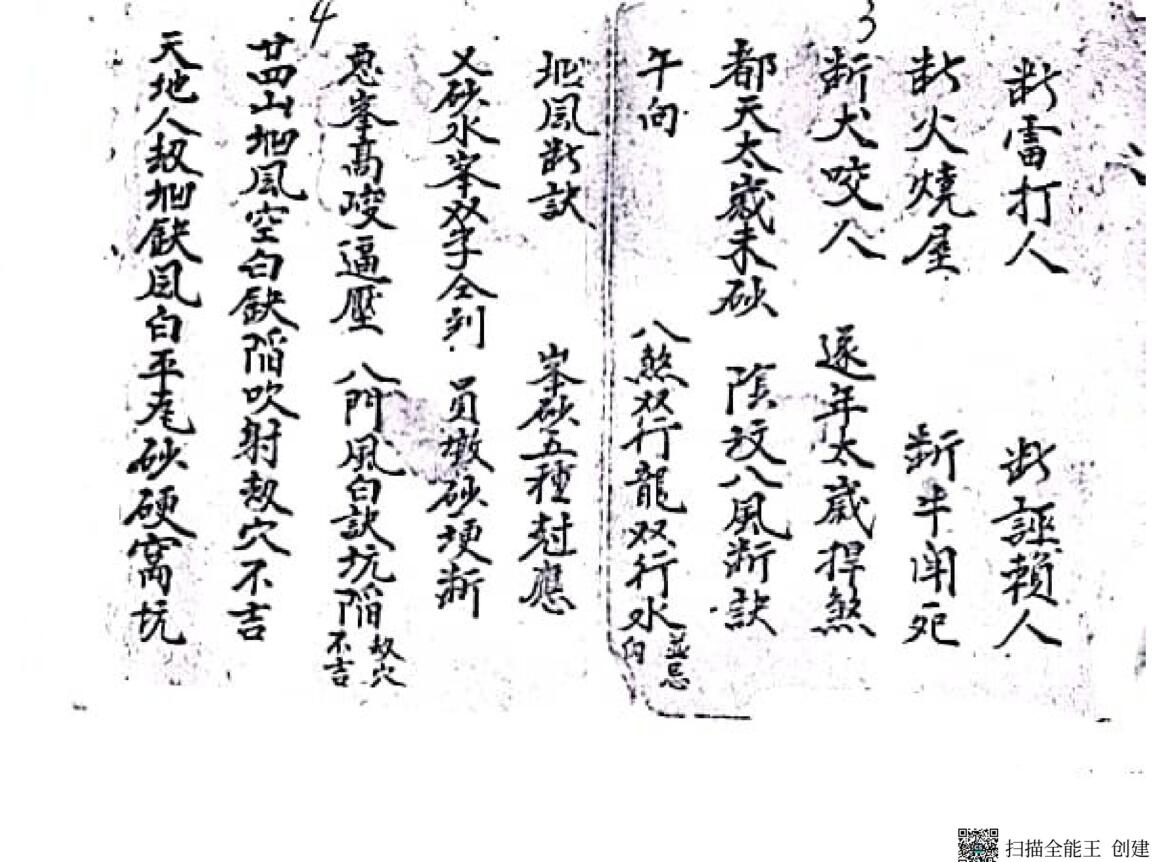 3
断雷打人 断誣賴人
断火燒屋 断牛闲死
断犬咬人 逐年太歲捍煞
都天太歲未砂 陰坟八風断訣
午向 八煞双行龍双行水並忌向
坭風断訣 峯砂五種對應
4
义砂水峯双字仝到 員墩砂埂断
惡峯高峻逼壓 八門風白訣坑陷劫穴不吉
廿四山坭風空白缺陷吹射劫穴不吉
天地人劫坭缺風白平砂硬窩坑
扫描全能王 创建